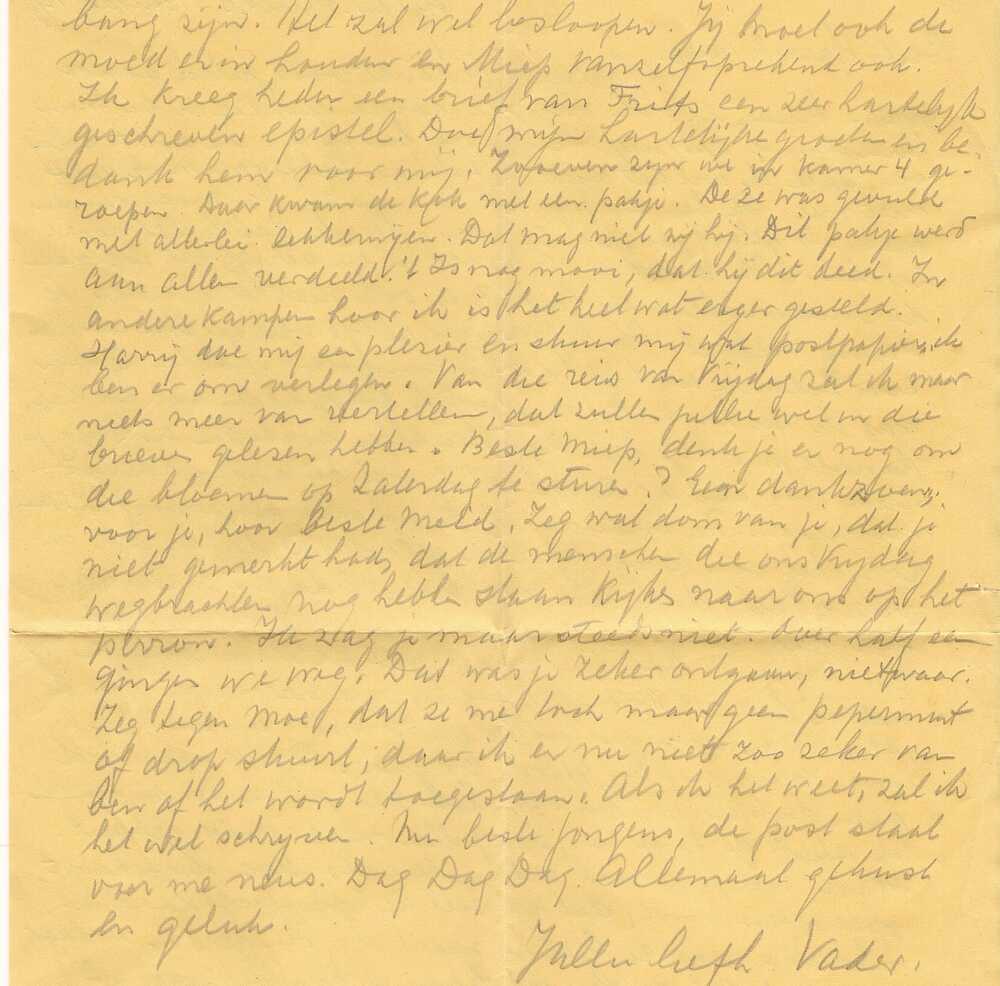 bang zijn. Het zal wel besloopen. Jij moet ook de
moed er in houden en Miep vanzelfsprekend ook.
Ik kreeg heden een brief van Frits een zeer hartelijk
geschreven epistel. Doe mijn hartelijke groeten en be-
dank hem voor mij. Zoeven zijn we in kamer 4 ge-
roepen. Daar kwam de Kok met een pakje. Deze was gevuld
met allerlei lekkernijen. Dat mag niet zij hij. Dit pakje werd
aan allen verdeeld. 't Is nog mooi, dat hij dit deed. In
andere kampen hoor ik is het heel wat erger gesteld.
Harry doe mij een plezier en stuur mij wat postpapier, ik
ben er om verlegen. Van die reis van Vrijdag zal ik maar
niets meer van vertellen, dat zullen jullie wel in die
brieven gelezen hebben. Beste Miep, denk je er nog om
die bloemen op Zaterdag te sturen? Een dankzoen
voor je, hoor beste meid. Zeg wat dom van je, dat je
niet gemerkt hads dat de menschen die ons Vrijdag
wegbrachten nog hebben staan kijken naar ons op het
perron. Ik zag je maar steeds niet. Over half een
gingen we weg. Dat was je zeker ontgaan, niet waar.
Zeg tegen Moe, dat ze me toch maar geen pepermunt
of drop stuurt, daar ik er nu niet zoo zeker van
ben of het wordt toegestaan. Als ik het weet, zal ik
het wel schrijven. Nu beste jongens, de post staat
voor me neus. Dag Dag Dag. Allemaal gekust
en geluk.
Jullie liefh. Vader.